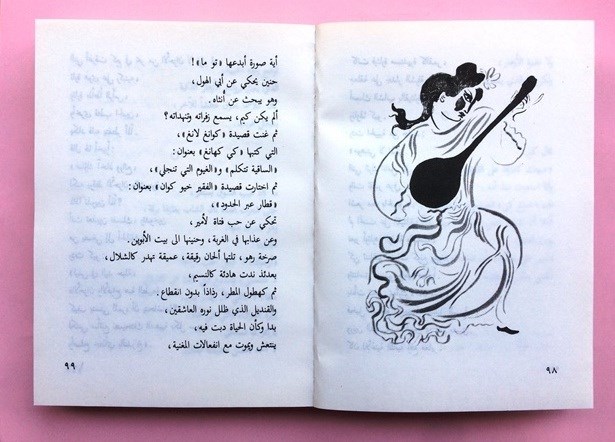 ٩٨
أية صورة أبدعها «تو ما»!
حنين يحكي عن أبي الهول،
وهو يبحث عن أنثاه.
ألم يكن كيم، يسمع زفراته وتنهداته؟
ثم غنت قصيدة «كوانغ لانغ»،
التي كتبها «كي كهانغ» بعنوان:
«الساقية تتكلم» و«الغيوم التي تنجلي»،
ثم اختارت قصيدة «الفقير خيو كوان» بعنوان:
«قطار عبر الحدود»،
تحكي عن حب فتاة لأمير،
وعن عذابها في الغربة، وحنينها الى بيت الأبوين.
صرخة رهو، تلتها ألحان رقيقة، عميقة تهدر كالشلال،
بعدئذ ندت هادئة كالنسيم،
ثم كهطول المطر، رذاذاً بدون انقطاع.
والقنديل الذي ظلل نوره العاشقين،
بدا وكأن الحياة دبت فيه،
ينتعش ويموت مع انفعالات المغنية،
٩٩